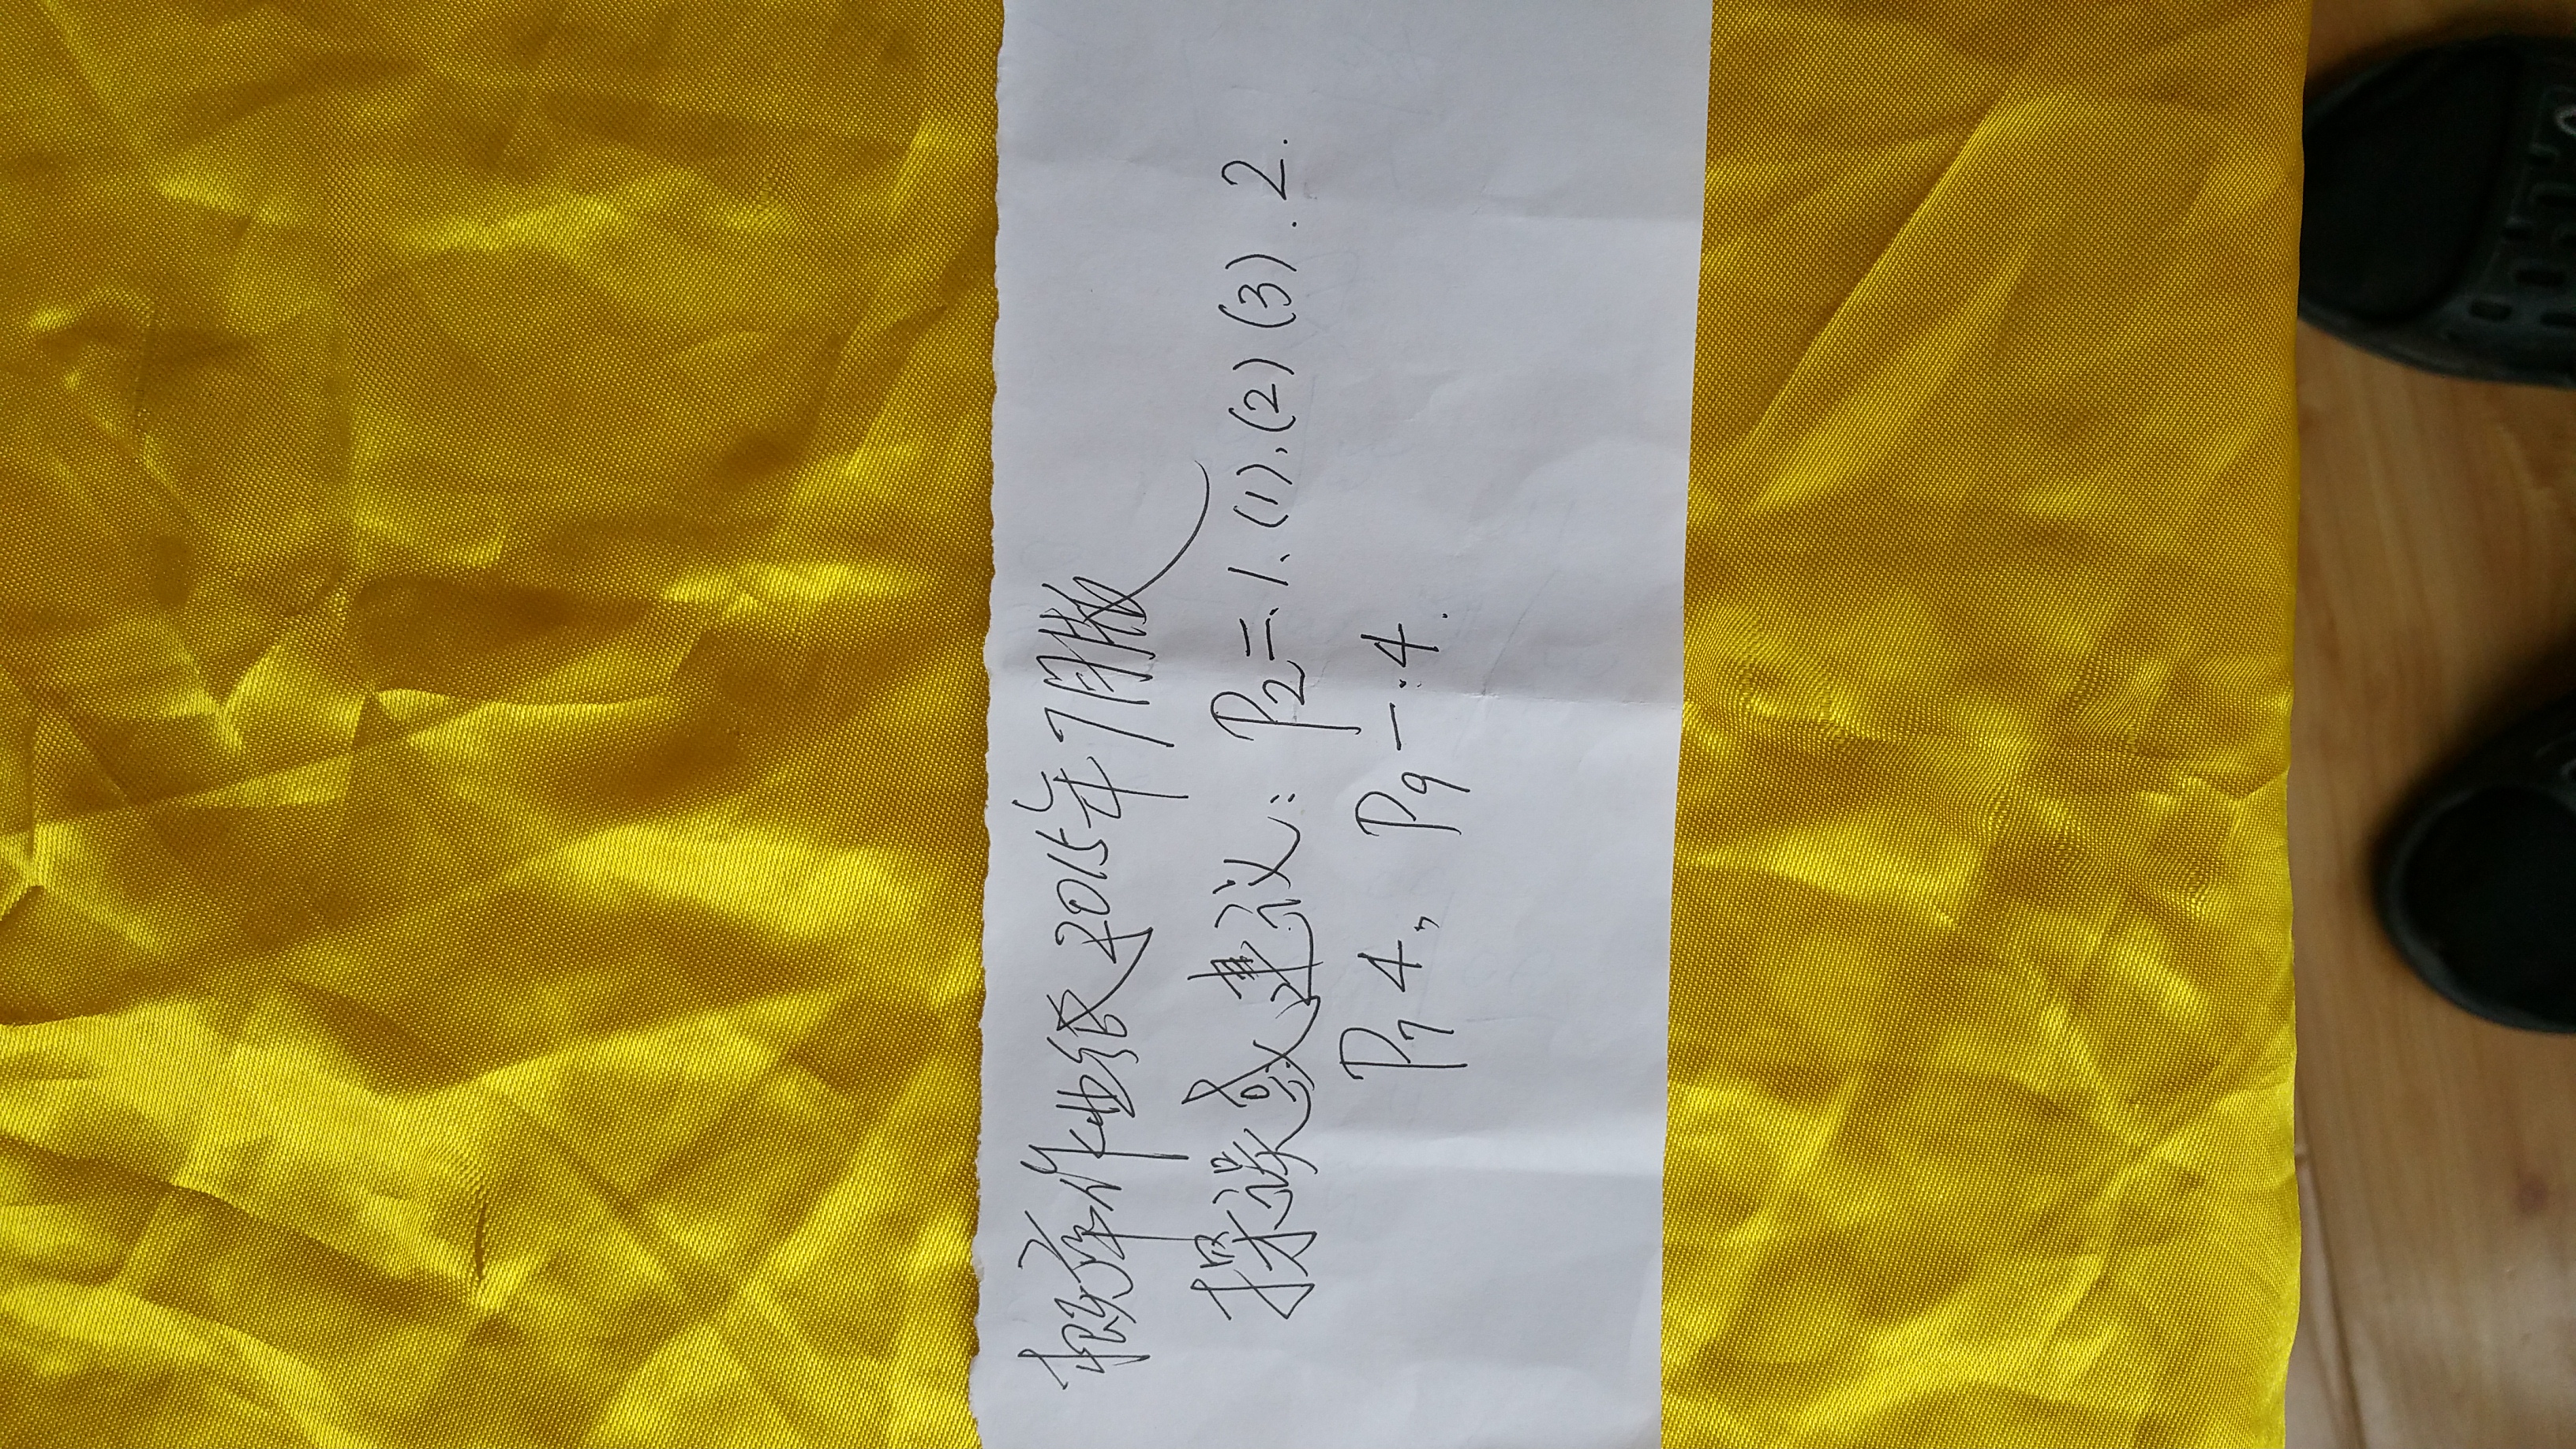 概率作业纸2015年7月版
探误或建议: P2二、1、(1)、(2)(3).2.
P7 4, P9一:4.